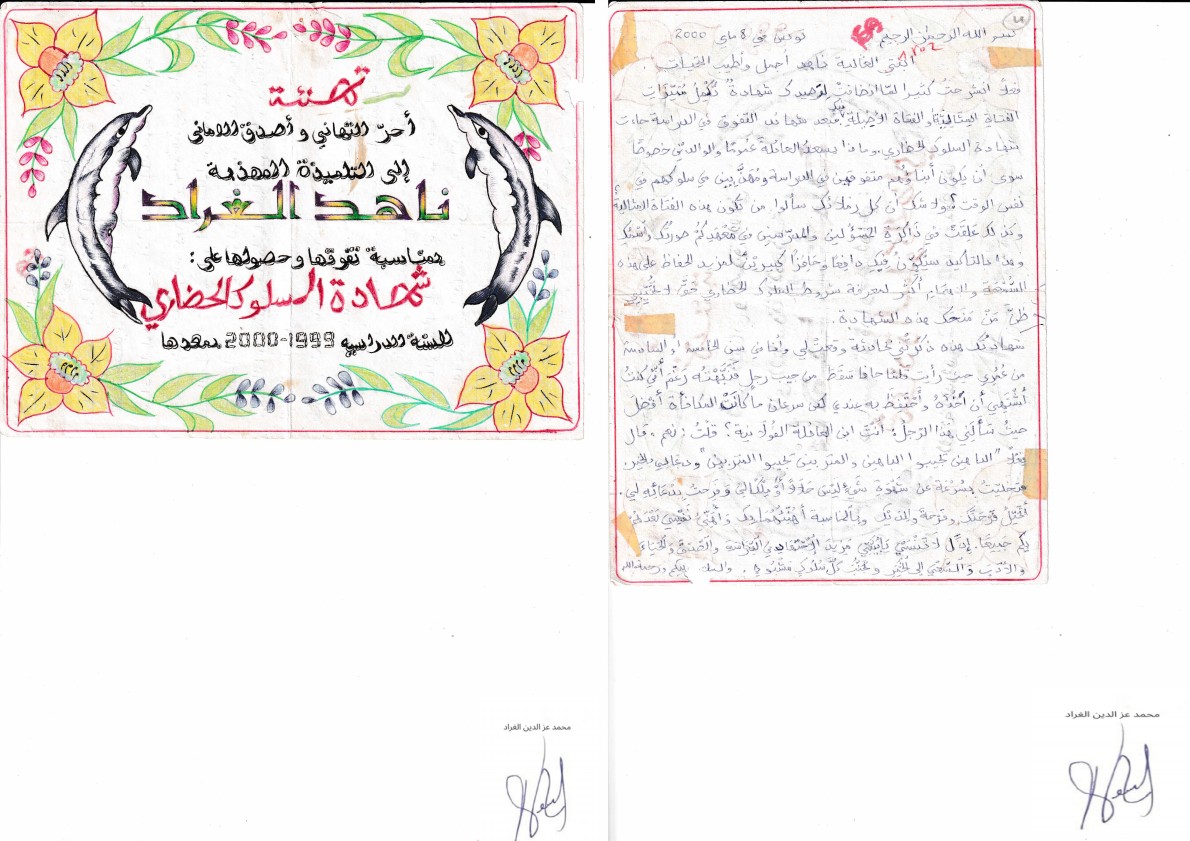 تهنئة
أحرّ التهاني و أصدق الاماني
إلى التلميذة المهذبة
ناهد الغراد
بمناسبة تفوقها وحصولها على :
شهادة السلوك الحضاري
للسنة الدراسية 1999-2000 بمعهدها
محمد عز الدين الغراد
بسم الله الرحمن الرحيم تونس في 8 ماي 2000
ابنتي الغالية ناهد أجمل وأطيب التحيات
فعلا انشرحت كثيرا لمّا
الفتاة المثاليّة والفتاة فبعد شهائد التفوق في الدراسة جاءت
شهادة السلوك الحضاري. وماذا يسعد العائلة عمومًا والوالدين خصوصًا
سوى أن يكون أبناؤهم متفوقين في الدراسة ومهذّبين في سلوكهم في
نفس الوقت ولا شك أن كل زملائك سألوا من تكون هذه الفتاة المثالية
وكذلك علقت في ذاكرة المسؤولين والمدرّسين في معهدكم صورتك واسمك
وهذا بالتأكيد سيكون فيك دافعا وحافزا كبيرين لمزيد الحفاظ على هذه
السّمعة أكثر لمعرفة شروط السلوك الحضاري حقّا
ظنّ مَنْ مَنَحَك هذه الشهادة.
شهادتك هذه ذكّرتني بحادثة وقعت لي وأنا في سن الخامسة أو السادسة
من عمري حيث رأيت قلمًا جافا سقط من جيب رجل فنبّهته رغم أنّي كنتُ
أشتهي أن آخذه وأحتفظ به عندي لكن سرعان ما كانت المكافأة أفضل
حيث سألني هذا الرجل: أنت ابن العائلة الفولانية؟ قلتُ: نعم، قال
فعلا "الباهين يجيبوا الباهين والمتربين يجيبوا المتربين" ودعا لي بالخير.
فتخليتُ بسُرعة عن شهوة شيء ليس حلالا أو ملكا لي وفرحت بدعائه لي.
أتخيّل فرحتك وفرحة والديك وبالمناسبة أهنّئهما بك وأهنّئ نفسي
بكم جميعا. إذن لا تنسي يا ابنتي مزيد الاجتهاد في الدراسة والصدق والحياء
والأدب والسّعي إلى الخير وتجنّب كلّ سلوك مشبوه. والسلام عليكم ورحمة الله
محمد عز الدين الغراد